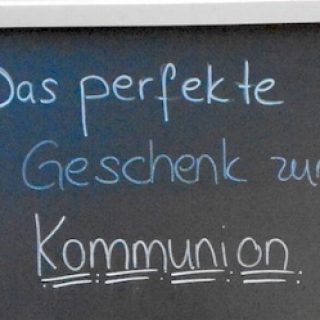 Das perfekte
Geschenk zur
Kommunion